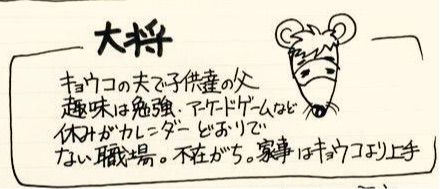 大将
キョウコの夫で子供達の父
趣味は勉強、アーケードゲームなど
休みがカレンダーどおりで
ない職場。不在がち。家事はキョウコより上手